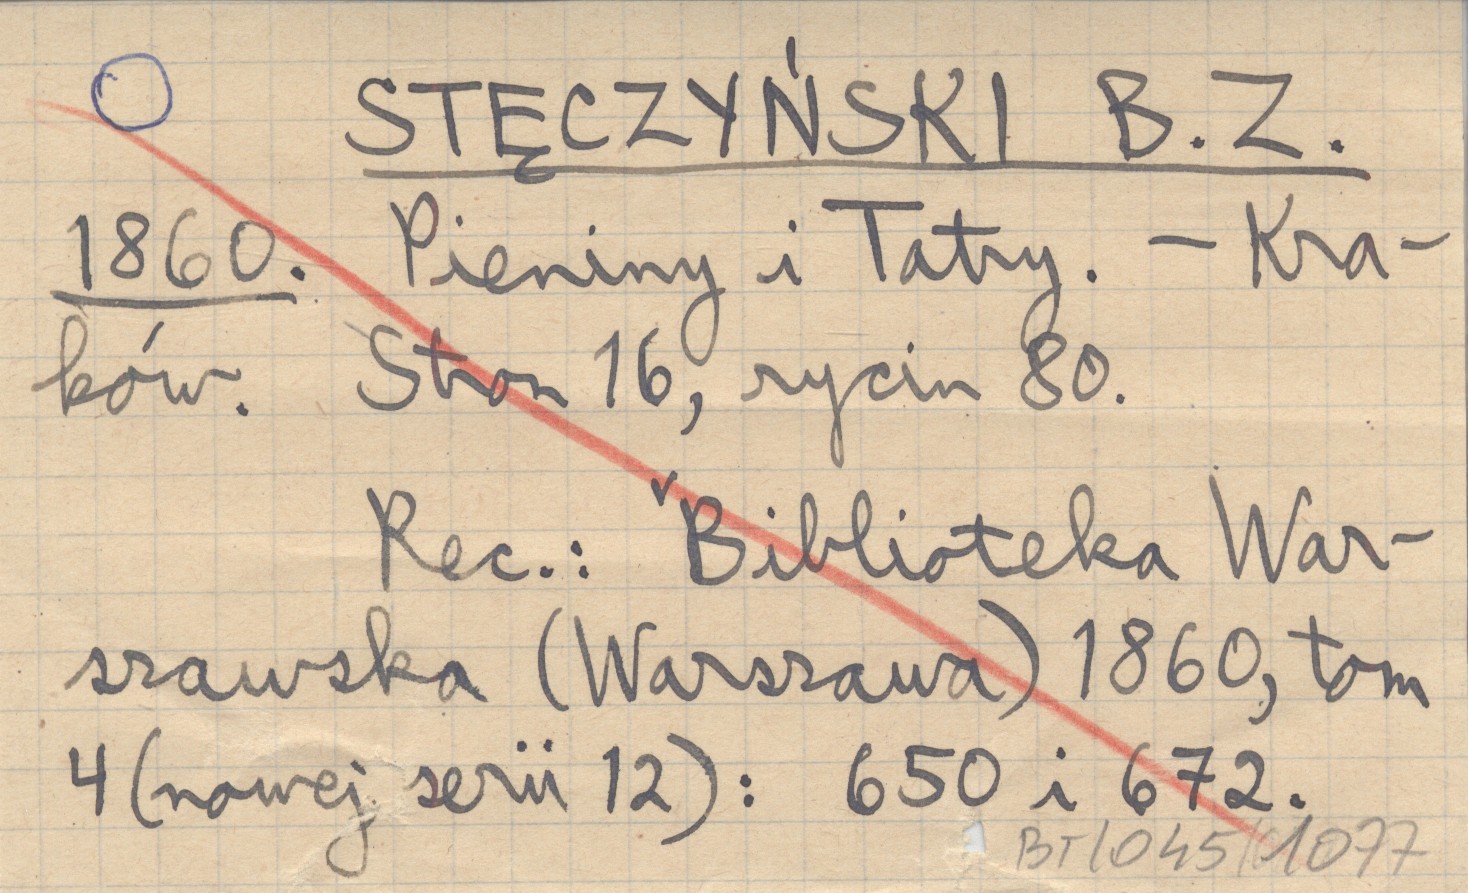 STĘCZYŃSKI B. Z.
1860. Pieniny i Tatry. – Kra-
ków. Stron 16, rycin 80.
Rec.: Biblioteka War-
szawska (Warszawa) 1860, tom
4 (nowej serii 12): 650 i 672.
BT/045/1077